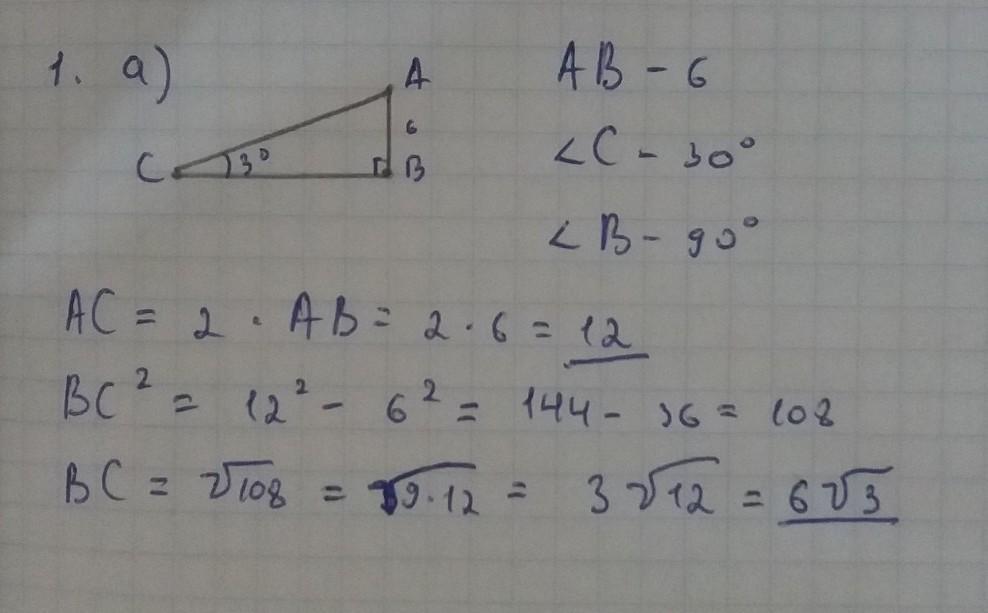 1. a)
A
AB - 6
6
C 3° B
<C - 30°
<B - 90°
AC = 2 · AB = 2 · 6 = 12
BC² = 12² - 6² = 144 - 36 = 108
BC = √108 = √9·12 = 3√12 = 6√3